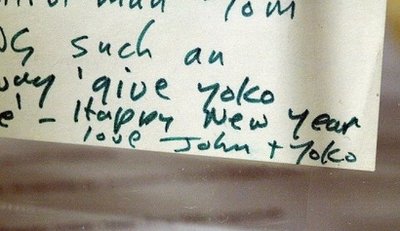 man
such an
way 'give yoko
e' - Happy New Year
love John + Yoko